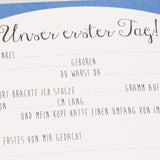 Unser erster Tag!
NKEL GEBOREN
DU WARST DA
ORT BRACHTE ICH STOLZE GRAMM
CM LANG
UND MEIN KOPF HATTE EINEN UMFANG VON
ERSTES VON MIR GEDACHT: